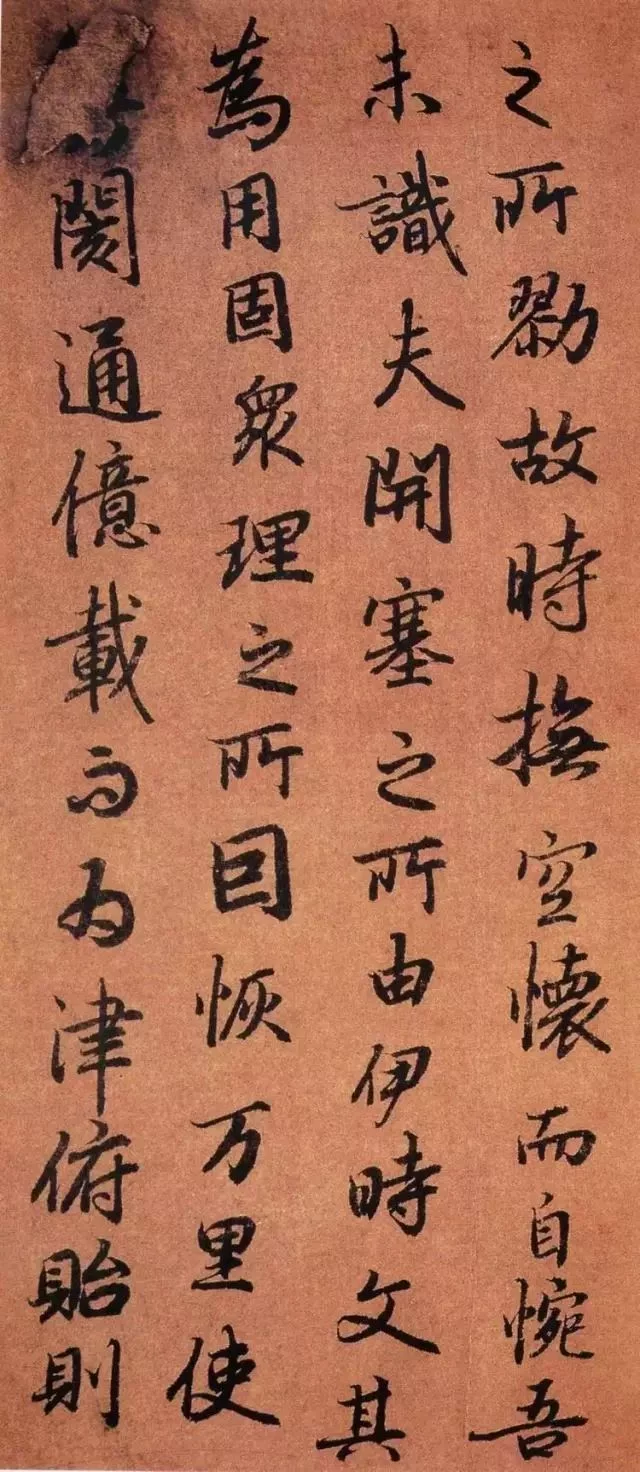 之所勠故時撫空懷而自惋吾
未識夫開塞之所由伊時文其
為用固衆理之所因恢万里使
閡通億載而为津俯貽則